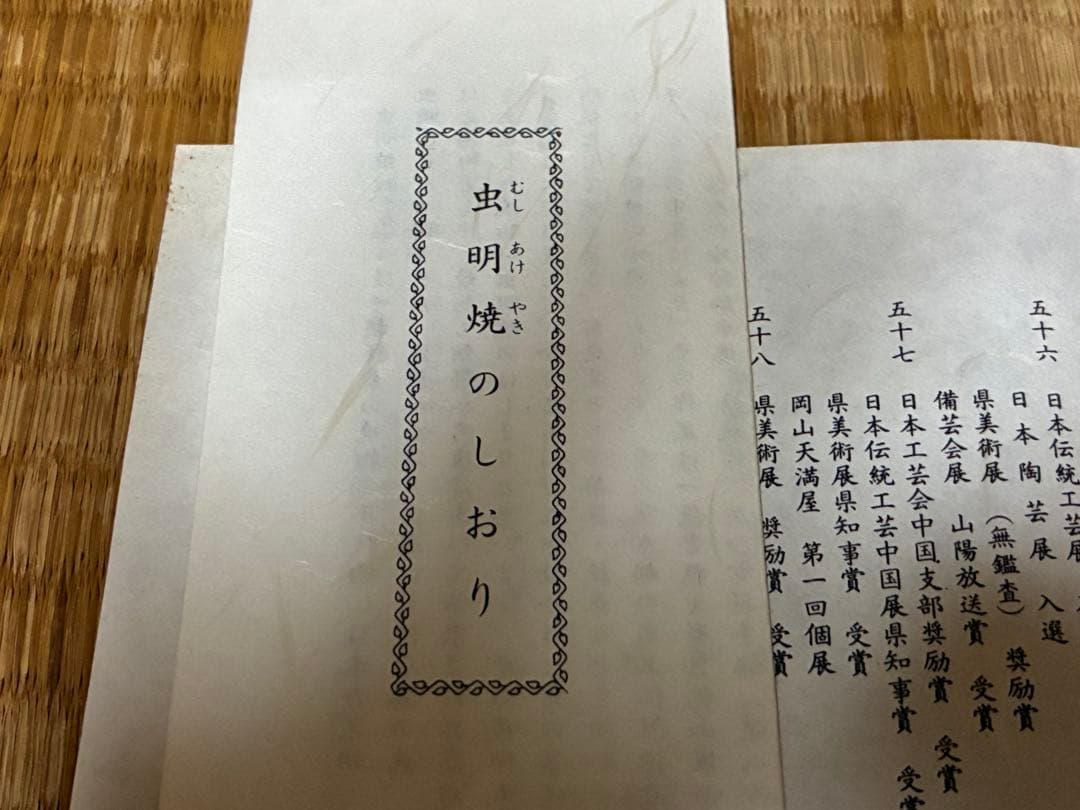 虫明焼のしおり
むしあけやき
五十六 日本伝統工芸展
日本陶芸展 入選
県美術展 (無鑑査) 奨励賞
備芸会展 山陽放送賞 受賞
五十七 日本工芸会中国支部奨励賞 受賞
日本伝統工芸中国展県知事賞 受賞
県美術展県知事賞 受賞
岡山天満屋 第一回個展
五十八 県美術展 奨励賞 受賞